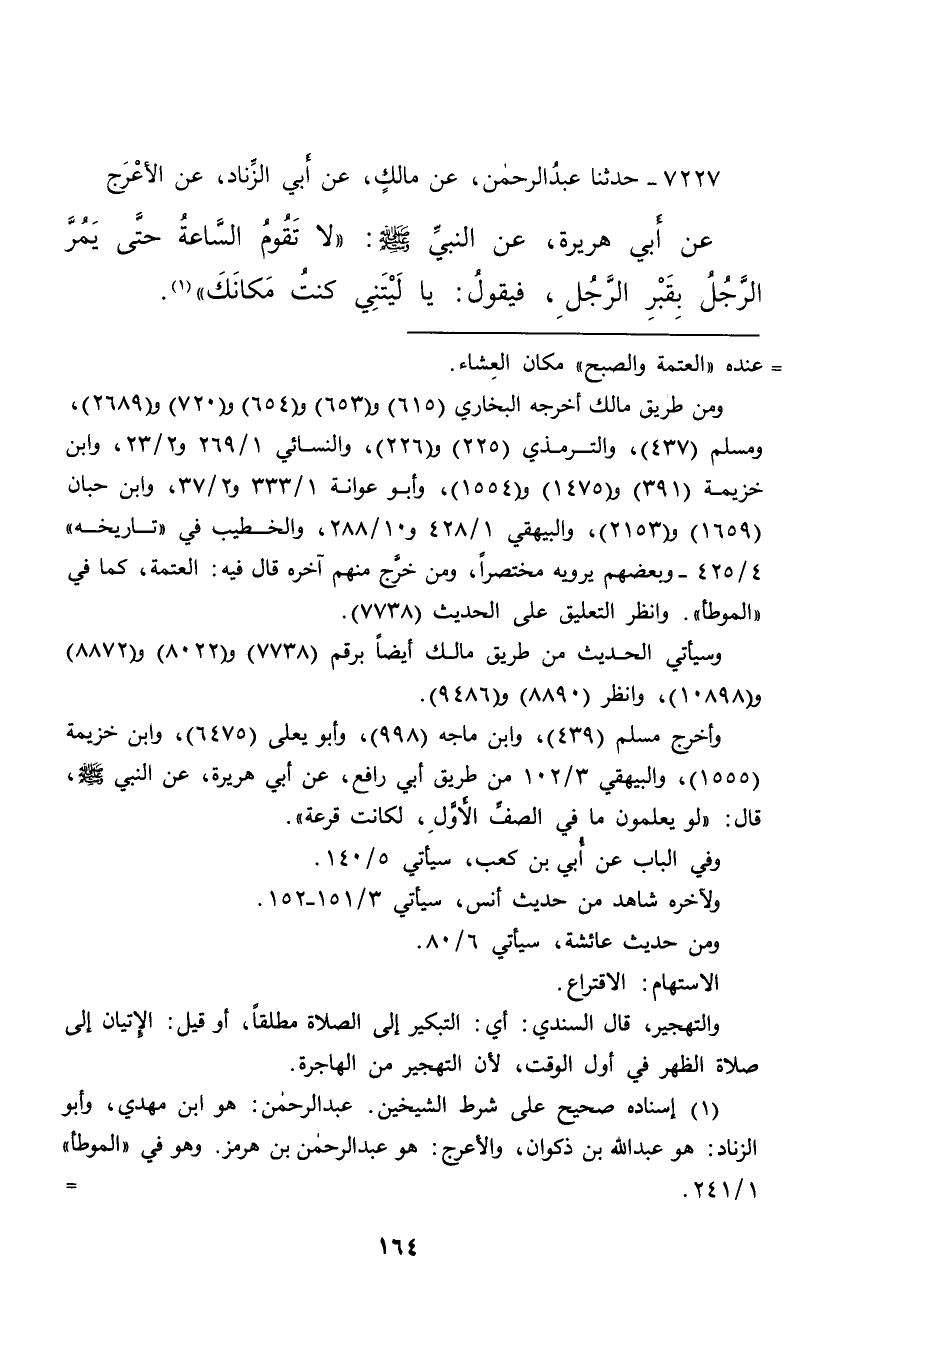 ٧٢٢٧ - حدثنا عبدُالرحمٰن، عن مالكٍ، عن أَبي الزِّناد، عن الأعْرَج
عن أَبي هريرة، عن النبيِّ ﷺ: «لا تَقُومُ السَّاعةُ حتَّى يَمُرَّ
الرَّجُلُ بِقَبْرِ الرَّجُلِ، فيقولُ: يا لَيْتَنِي كنتُ مَكانَكَ»(١).
= عنده «العتمة والصبح» مكان العِشاء.
ومن طريق مالك أخرجه البخاري (٦١٥) و(٦٥٣) و(٦٥٤) و(٧٢٠) و(٢٦٨٩)،
ومسلم (٤٣٧)، والترمذي (٢٢٥) و(٢٢٦)، والنسائي ٢٦٩/١ و٢٣/٢، وابن
خزيمة (٣٩١) و(١٤٧٥) و(١٥٥٤)، وأبو عوانة ٣٣٣/١ و٣٧/٢، وابن حبان
(١٦٥٩) و(٢١٥٣)، والبيهقي ٤٢٨/١ و٢٨٨/١٠، والخطيب في «تاريخه»
٤٢٥/٤ - وبعضهم يرويه مختصراً، ومن خرَّج منهم آخره قال فيه: العتمة، كما في
«الموطأ». وانظر التعليق على الحديث (٧٧٣٨).
وسيأتي الحديث من طريق مالك أيضاً برقم (٧٧٣٨) و(٨٠٢٢) و(٨٨٧٢)
و(١٠٨٩٨)، وانظر (٨٨٩٠) و(٩٤٨٦).
وأخرج مسلم (٤٣٩)، وابن ماجه (٩٩٨)، وأبو يعلى (٦٤٧٥)، وابن خزيمة
(١٥٥٥)، والبيهقي ١٠٢/٣ من طريق أبي رافع، عن أبي هريرة، عن النبي ﷺ،
قال: «لو يعلمون ما في الصفِّ الأَوَّلِ، لكانت قرعة».
وفي الباب عن أُبي بن كعب، سيأتي ١٤٠/٥.
ولآخره شاهد من حديث أنس، سيأتي ١٥١/٣-١٥٢.
ومن حديث عائشة، سيأتي ٨٠/٦.
الاستهام: الاقتراع.
والتهجير، قال السندي: أي: التبكير إلى الصلاة مطلقاً، أو قيل: الإتيان إلى
صلاة الظهر في أول الوقت، لأن التهجير من الهاجرة.
(١) إسناده صحيح على شرط الشيخين. عبدالرحمٰن: هو ابن مهدي، وأبو
الزناد: هو عبدالله بن ذكوان، والأعرج: هو عبدالرحمٰن بن هرمز. وهو في «الموطأ»
٢٤١/١. =
١٦٤